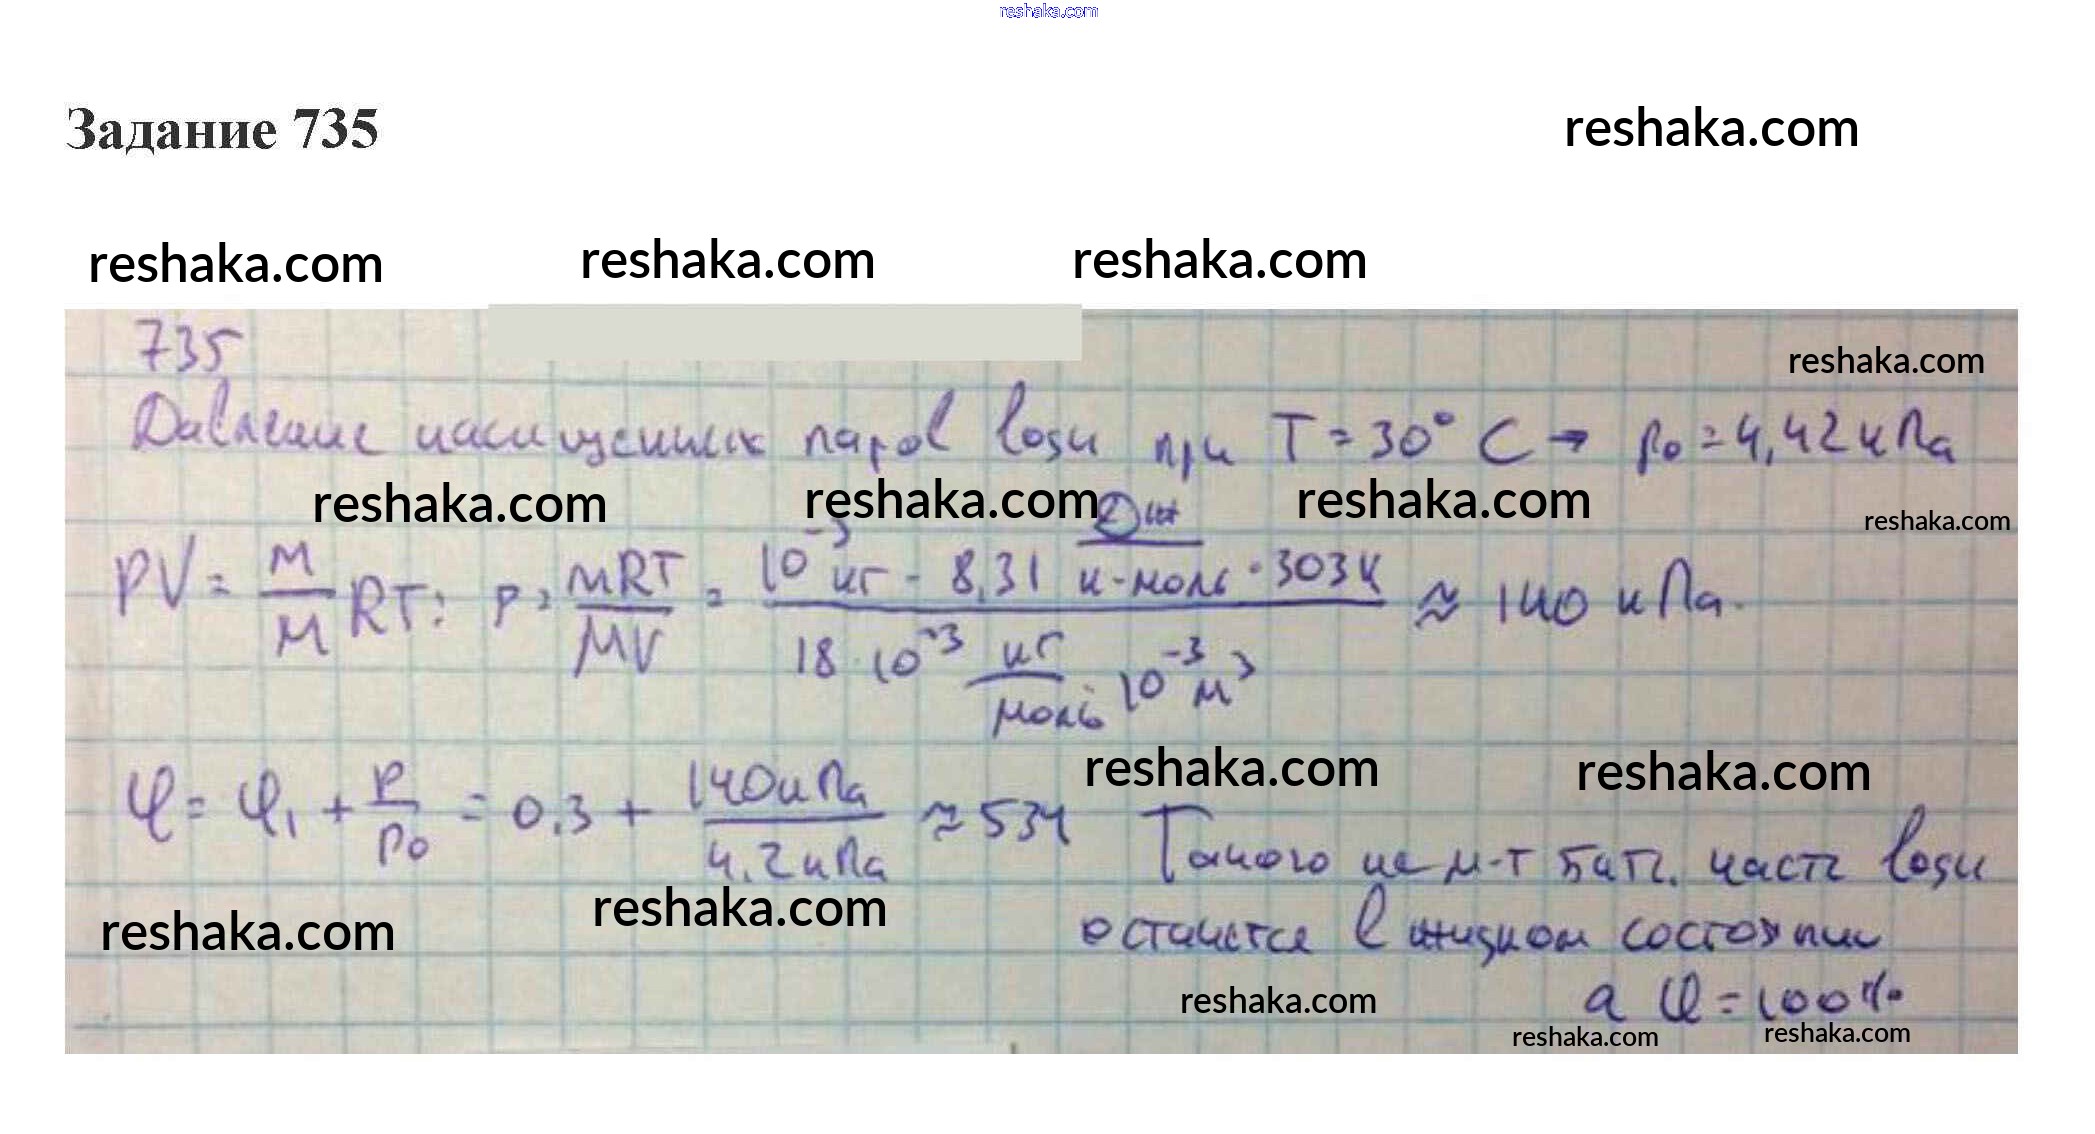 reshaka.com
Задание 735
reshaka.com
reshaka.com reshaka.com reshaka.com
735
reshaka.com
Давление насыщенных паров воды при T = 30° C → p₀ = 4,42 кПа
reshaka.com reshaka.com reshaka.com
reshaka.com
PV = m/M RT; P = mRT/MV = 10⁻³ кг · 8,31 Дж/к·моль · 303К / 18·10⁻³ кг/моль · 10⁻³ м³ ≈ 140 кПа.
reshaka.com reshaka.com
φ = φ₁ + p/p₀ = 0,3 + 140кПа/4,2кПа ≈ 534 Такого не м-т быть. часть воды
reshaka.com reshaka.com
останется в жидком состоянии
reshaka.com
а φ = 100%
reshaka.com reshaka.com